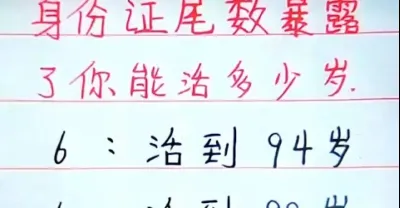 身份证尾数暴露
了你能活多少岁.
6：活到94岁